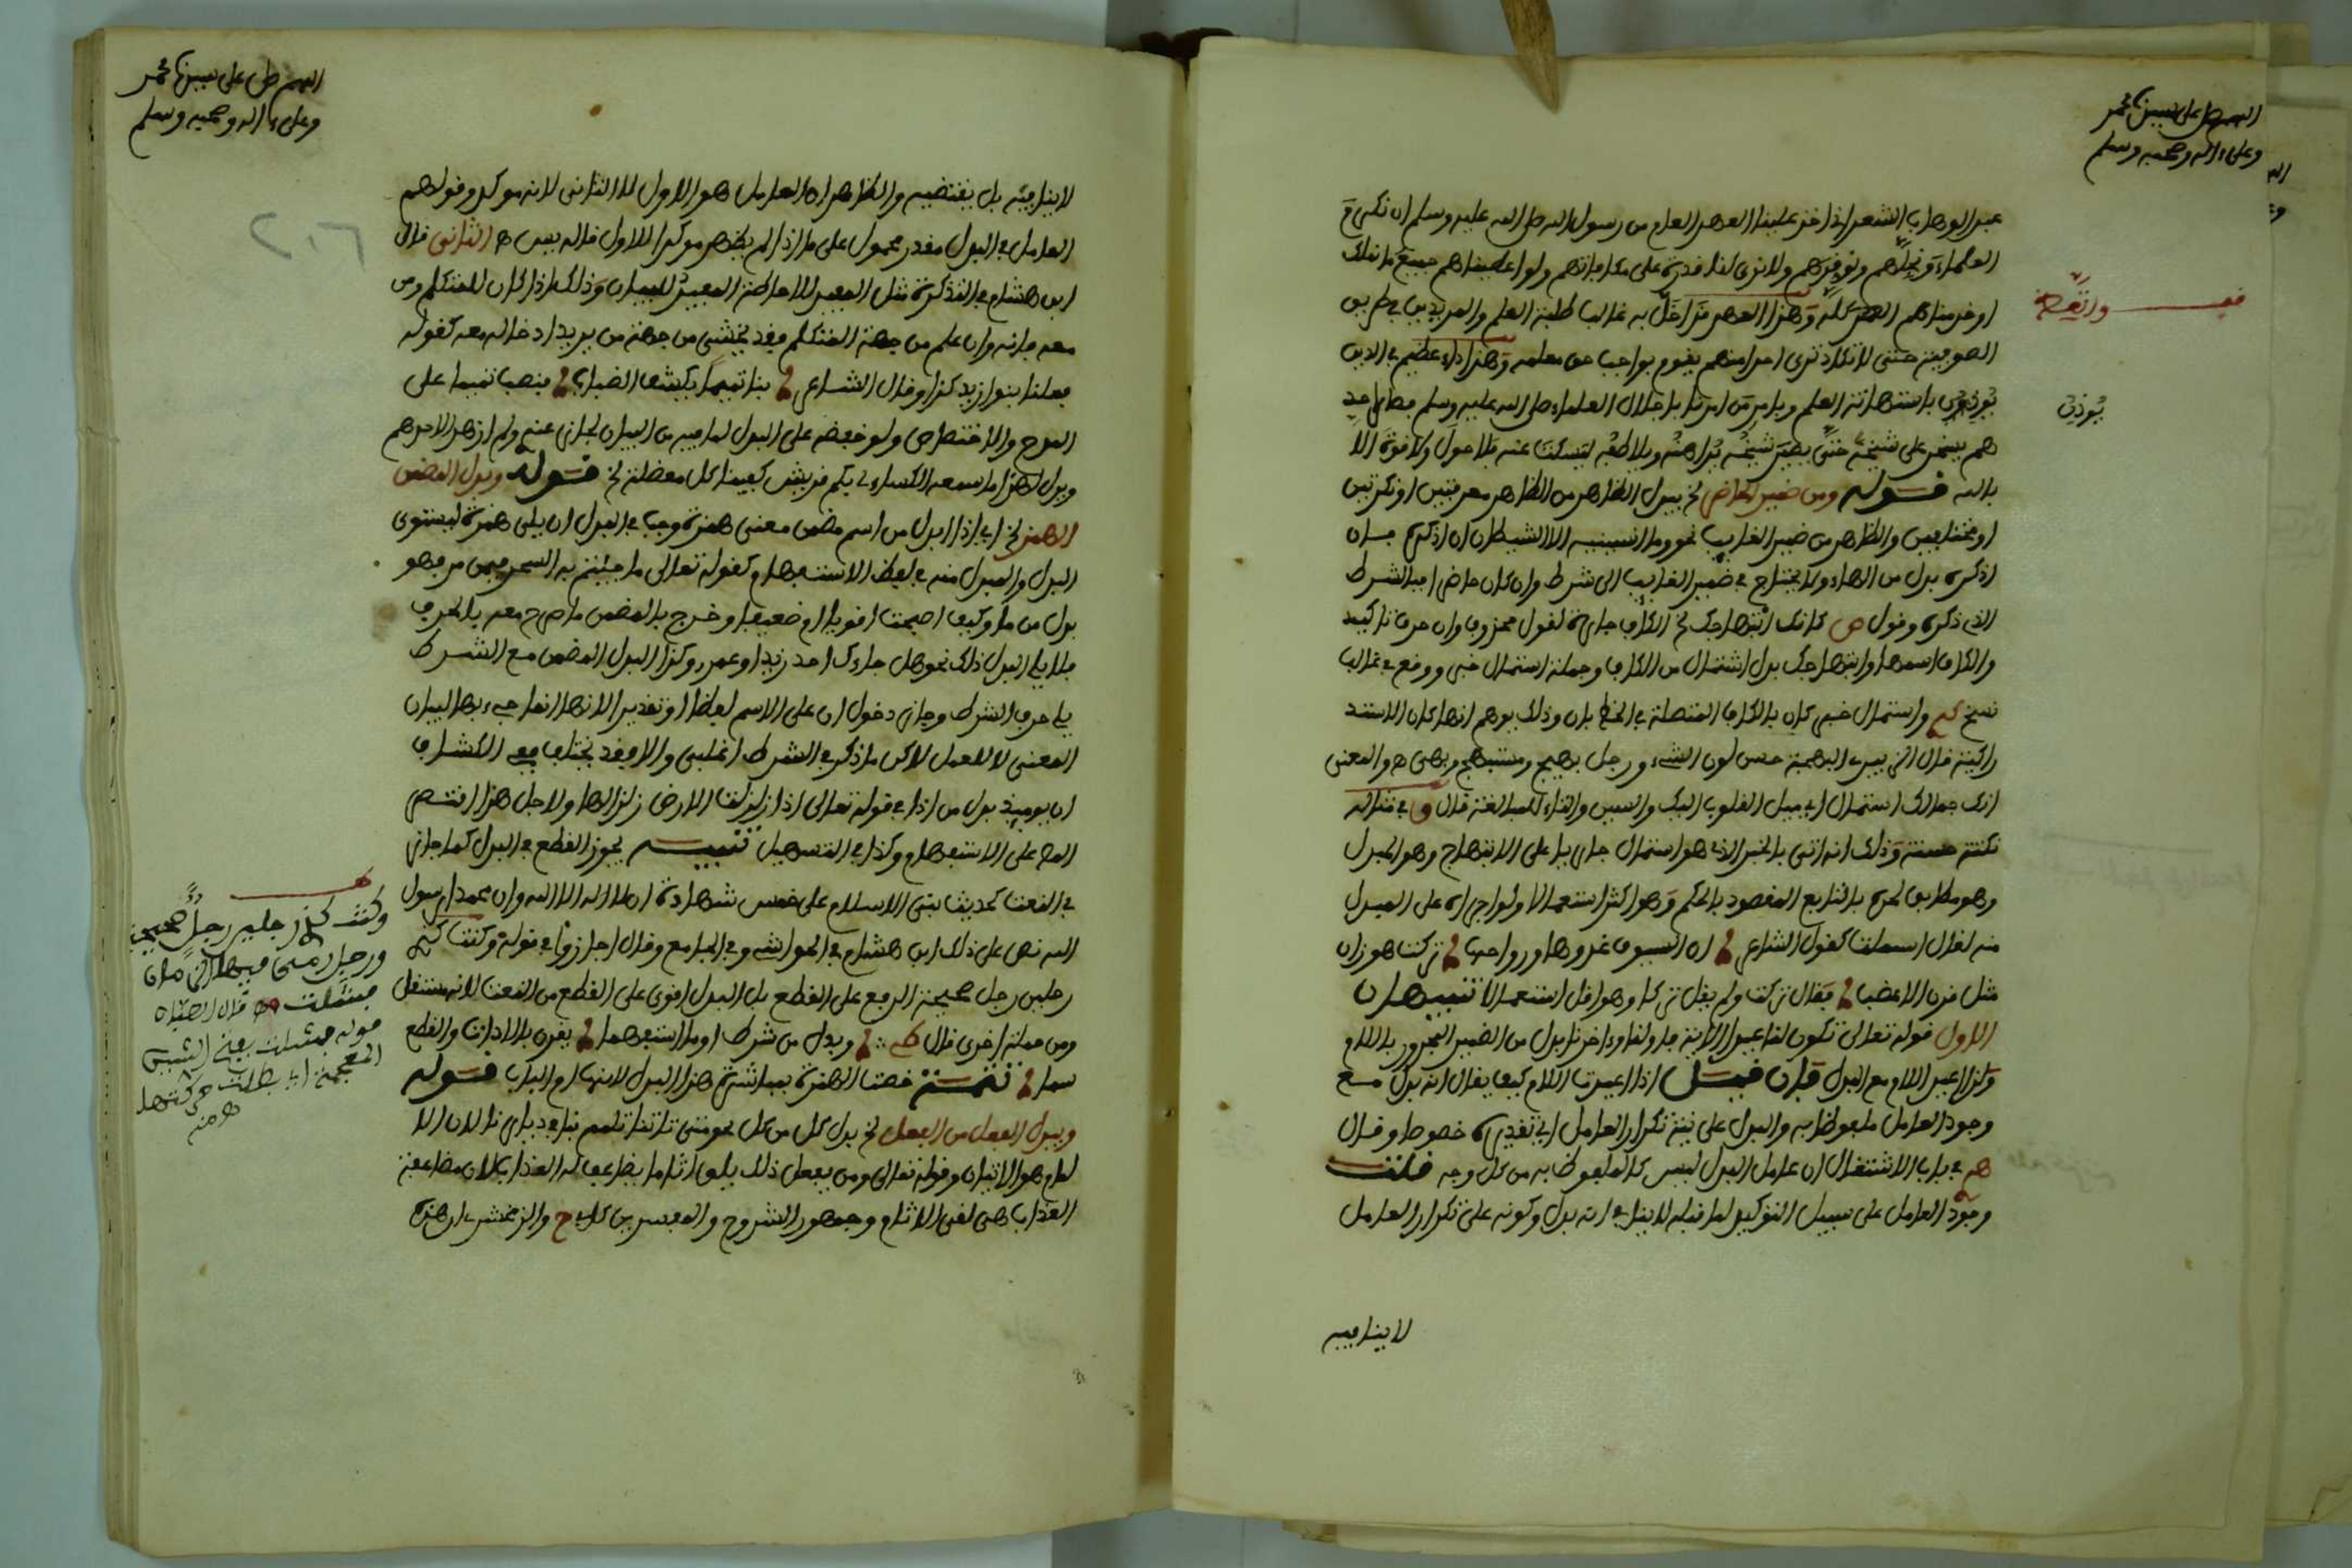 اللهم صل على سيدنا محمد
وعلى ءاله وصحبه وسلم
عبد الوهاب الشعراني اخذ علينا العهد العام من رسول الله صلى الله عليه وسلم ان نكرم
العلماء ونجلهم ونوقرهم ولا نرى لنا قدرة على مكافاتهم ولو اعطيناهم جميع ما نملك
او خدمناهم العمر كله وهذا العهد قد اخل به غالب طلبة العلم والمريدين في طريق
الصوفية حتى لا تكاد ترى احدا منهم يقوم بواجب حق معلمه وهذا داء عظيم في الدين
يؤذن باستهانة العلم وبامر من امرنا باجلال العلماء صلى الله عليه وسلم فصار احد
هم يفخر على شيخه حتى يصير شيخه يداهنه ويلاطفه ليسكت عنه فلا حول ولا قوة الا
بالله قوله ومن ضمير الحاضر الخ يبدل الظاهر من الظاهر معرفتين او نكرتين
او مختلفين والظاهر من ضمير الغايب نحو وما انسانيه الا الشيطان ان اذكره فان
اذكره بدل من الهاء ولا يحتاج في ضمير الغايب الى شرط وان كان حاضرا فبالشرط
الذي ذكره وقول ص كانك ابتهاجك الخ الكاف جارة لقول محذوف وان حرف تاكيد
والكاف اسمها وابتهاجك بدل اشتمال من الكاف وجملة استمال خبر ووقع في غالب
نسخ واستمال خبر كان بالكاف المتصلة في الخط بان وذلك يوهم انها كان الاستد
راكية قال الزبيدي البهجة حسن لون الشيء ورجل بهيج ومبتهج وبهي ه والمعنى
انك جمالك استمال اي ميل القلوب اليك والسين والتاء للمبالغة قال وفي مثاله
نكتة حسنة وذلك انه اتى بالخبر الذي هو استمال جاريا على الابتهاج وهو البدل
وهو مطابق لجري التابع المقصود بالحكم وهو اكثر استعمالا ولو اجراه على المبدل
منه لقال استملت كقول الشاعر ان السيوف غدوها ورواحها تركت هوازن
مثل قرن الاعضب فقال تركت ولم يقل تركا وهو اقل استعمالا تنبيهان
الاول قوله تعالى تكون لنا عيدا الاية فاولنا وءاخرنا بدل من الضمير المجرور باللام
ولذا اعيد اللام مع البدل فان قيل اذا اعيدت اللام كيف يقال انه بدل مع
وجود العامل ملفوظا به والبدل على نية تكرار العامل اي تقديره خصوصا وقال
هم في باب الاشتغال ان عامل البدل ليس كالملفوظ به من كل وجه قلت
وجود العامل على سبيل التوكيد لما قبله لا ينافي انه بدل وكونه على تكرار العامل
لا ينافيه
وانتقصه
يؤذن
اللهم صل على سيدنا محمد
وعلى ءاله وصحبه وسلم
لا ينافيه بل يقتضيه والظاهر ان العامل هو الاول لا الثاني لانه موكد وقولهم
العامل في البدل مقدر محمول على ما اذا لم يظهر موكد الاول قاله يس ه الثاني قال
ابن هشام في التذكرة مثل المفيد للاحاطة المفيد للبيان وذلك اذا كان للمتكلم ومن
معه فانه وان علم من جهة المتكلم فقد يخشى من جهة من يريد ادخاله معه كقوله
فعلنا بنو زيد كذا وقال الشاعر بنا تميما يكشف الضباب فنصب تميما على
المدح والاختصاص ولو خفضه على البدل لما فيه من البيان لجاز
ويدل لهذا ما سمعه الكساءي بكم قريش كفينا كل معضلة الخ قوله وبدل المضمن
الهمز الخ اي اذا ابدل من اسم مضمن معنى همزة وجب في البدل ان يلي همزة ليستوي
البدل والمبدل منه في لفظ الاستفهام كقوله تعالى ما جئتم به السحر
بدل من ما وكيف اصبحت اقويا ام ضعيفا وخرج بالمضمن ما صرح معه بالحرف
فلا يلي البدل ذلك نحو هل جاءك احد زيد او عمرو وكذا البدل المضمن مع الشرط
يلي حرف الشرط وجاز دخول ان على الاسم لفظا او تقديرا لانها انما جيء بها لبيان
المعنى لا للعمل لاكن ما ذكر في الشرط اغلبي والا فقد يختلف ففي الكشاف
ان يوميذ بدل من اذا في قوله تعالى اذا زلزلت الارض زلزالها ولاجل هذا اقتصر
المص على الاستفهام وكذا في التسهيل تنبيه يجوز القطع في البدل كما جاز
في النعت كحديث بني الاسلام على خمس شهادة ان لا اله الا الله وان محمدا رسول
الله نص على ذلك ابن هشام في الحواشي وفي الجامع وقال اجازوا في قوله وكنت كذي
رجلين رجل صحيحة الرفع على القطع بل البدل اقوى على القطع من النعت لانه مستقل
ومن جملة اخرى قال وبدل من شرط او ما استفهما يقرن بالادات والقطع
سما تتمة خصت الهمزة بمباشرة هذا البدل لانها ام الباب قوله
ويبدل الفعل من الفعل الخ بدل كل من كل نحو متى تاتنا تلمم بنا في ديارنا لان الا
لمام هو الاتيان وقوله تعالى ومن يفعل ذلك يلق اثاما يضاعف له العذاب لان مضاعفة
العذاب هي لقي الاثام وجمهور الشروح والمفسرين كابي ح والزمخشري ان هذه
وكنت كذي رجلين رجل صحيحة
ورجل رمى فيها الزمان
فشلت ه قال الصبان
قوله فشلت بفتح الشين
المعجمة اي بطلت حركتها
ه منه